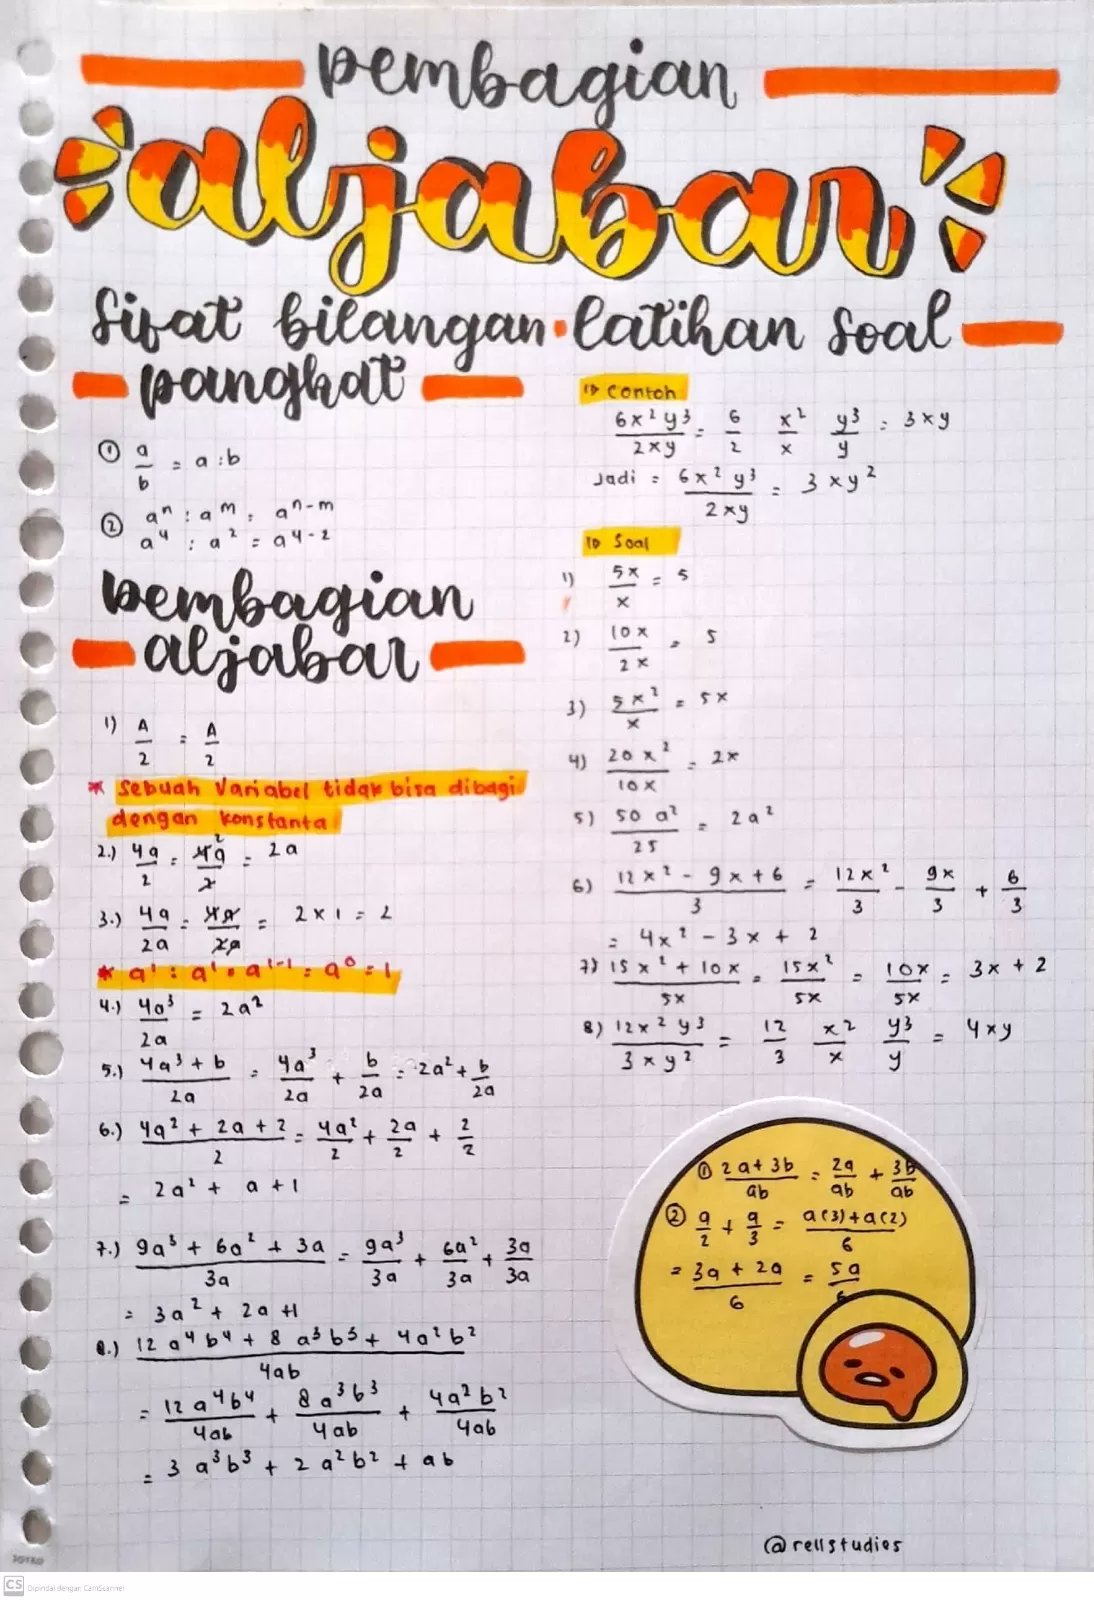 pembagian
aljabar
sifat bilangan pangkat
① a/b = a : b
② aⁿ : aᵐ = aⁿ⁻ᵐ
a⁴ : a² = a⁴⁻²
pembagian
aljabar
1) A/2 = A/2
* Sebuah Variabel tidak bisa dibagi
dengan konstanta
2.) 4a/2 = 4a²/2 = 2a
3.) 4a/2a = 4a/2a = 2 x 1 = 2
* a¹ : a¹ = a¹⁻¹ = a⁰ = 1
4.) 4a³/2a = 2a²
5.) 4a³ + b/2a = 4a³/2a + b/2a = 2a² + b/2a
6.) 4a² + 2a + 2/2 = 4a²/2 + 2a/2 + 2/2
= 2a² + a + 1
7.) 9a³ + 6a² + 3a/3a = 9a³/3a + 6a²/3a + 3a/3a
= 3a² + 2a + 1
8.) 12 a⁴ b⁴ + 8 a³ b³ + 4a² b²/4ab
= 12 a⁴ b⁴/4ab + 8 a³ b³/4ab + 4a² b²/4ab
= 3 a³ b³ + 2 a² b² + ab
latihan soal
Contoh
6x² y³/2xy = 6/2 x²/x y³/y = 3xy
Jadi = 6x² y³/2xy = 3 xy²
Soal
1) 5x/x = 5
2) 10x/2x = 5
3) 5x²/x = 5x
4) 20x²/10x = 2x
5) 50 a²/25 = 2a²
6) 12x² - 9x + 6/3 = 12x²/3 - 9x/3 + 6/3
= 4x² - 3x + 2
7) 15x² + 10x/5x = 15x²/5x = 10x/5x = 3x + 2
8) 12x² y³/3xy² = 12/3 x²/x y³/y = 4xy
① 2a + 3b/ab = 2a/ab + 3b/ab
② a/2 + a/3 = a(3) + a(2)/6
= 3a + 2a/6 = 5a/6
@rellstudies
CS Dipindai dengan CamScanner